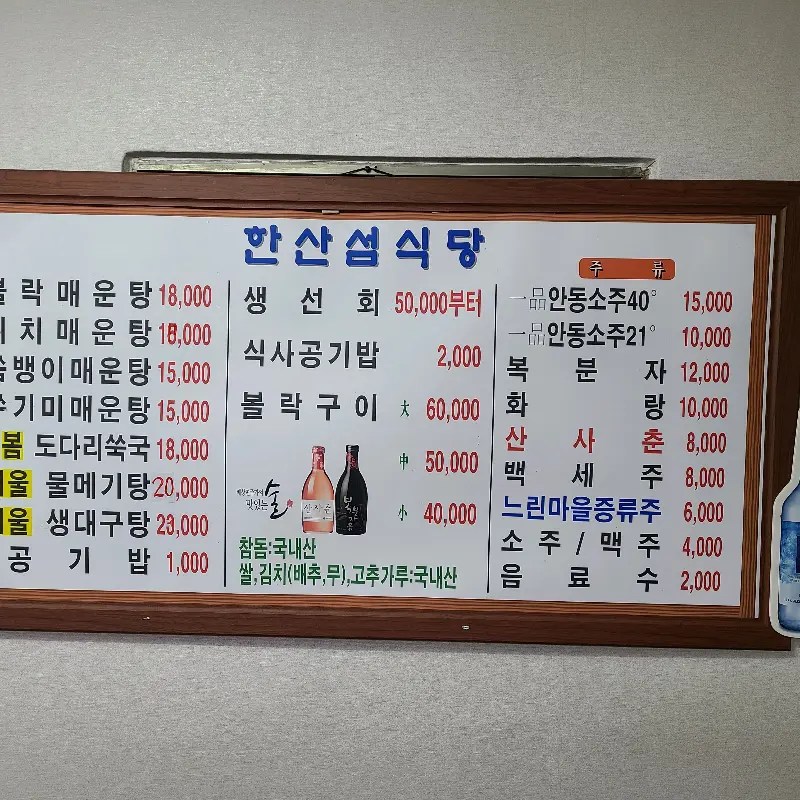 한산섬식당
락매운탕 18,000
치매운탕 18,000
뱅이매운탕 15,000
기미매운탕 15,000
봄 도다리쑥국 18,000
울 물메기탕 20,000
울 생대구탕 23,000
공기밥 1,000
생선회 50,000부터
식사공기밥 2,000
볼락구이 大 60,000
中 50,000
小 40,000
맛있는 술
참돔:국내산
쌀,김치(배추,무),고추가루:국내산
주류
一品안동소주40° 15,000
一品안동소주21° 10,000
복분자 12,000
화랑 10,000
산사춘 8,000
백세주 8,000
느린마을증류주 6,000
소주/맥주 4,000
음료수 2,000